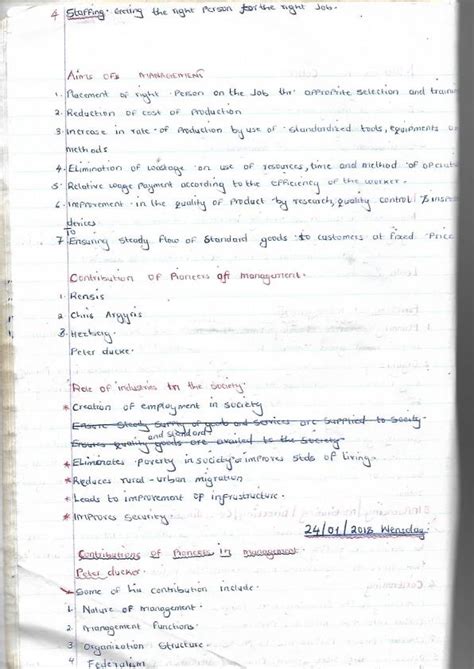 4 Staffing. Getting the right Person for the right Job.
Aims OF MANAGEMENT
1. Placement of right Person on the Job thr' appropriate selection and training
2. Reduction of cost of Production
3. Increase in rate of Production by use of standardized tools, equipments or
methods
4. Elimination of wastage on use of resources, time and method of operation
5. Relative wage payment according to the efficiency of the worker.
6. Improvement in the quality of Product by research, quality control &
devices
7. Ensuring steady flow of Standard goods to customers at fixed Price
Contribution of Pioneers of management.
1. Rensis
2 Chris Argyris
3. Hezberg
Peter ducker.
Role of industries in the Society.
* Creation of employment in society
Ensure Steady Supply of goods and services are supplied to society.
and standard
Ensures quality goods are availed to the Society
* Eliminates poverty in society & improves stds of living.
* Reduces rural - urban migration
* Leads to improvement of infrastructure.
* Improves security.
24/01/2018 Wensday.
Contributions of Pioneers in management
Peter ducker.
Some of his contribution include.
1 Nature of management.
2 Management functions.
3 Organization Structure.
4 Federalism